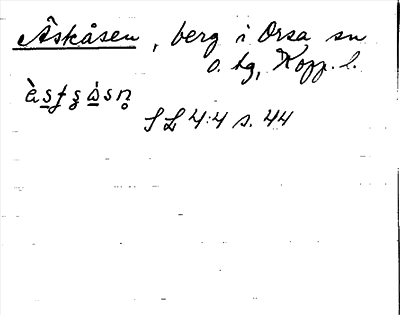 Åskåsen, berg i Orsa sn
o. hg, Kopp. l.
SL 4:4 s. 44